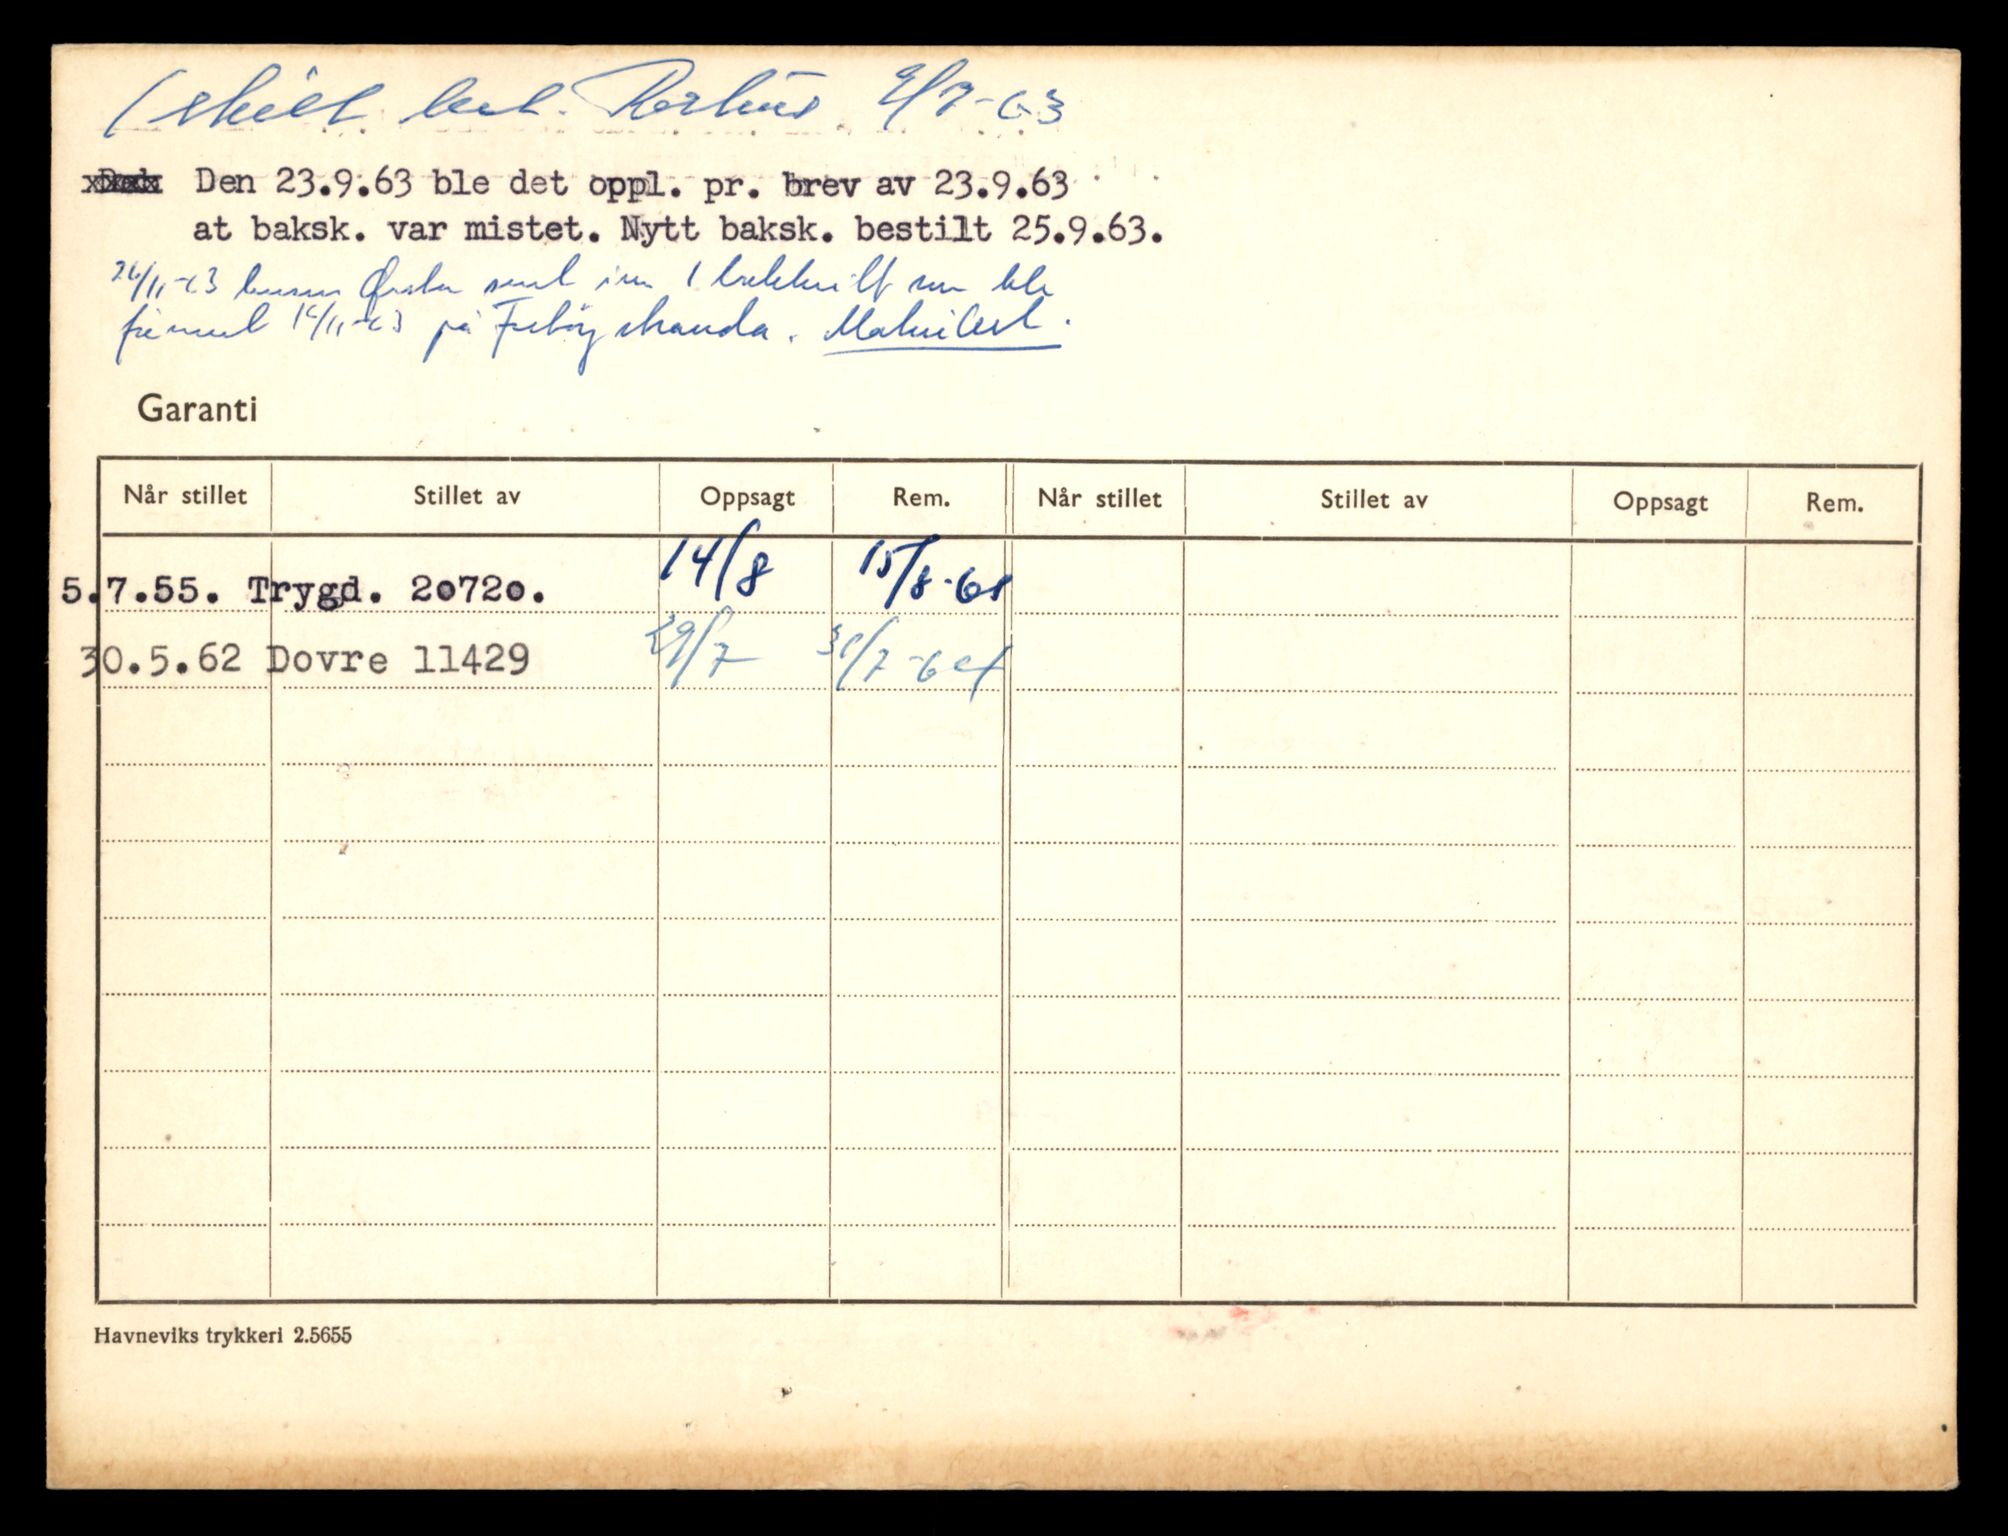 1 skilt best. 9/7-63
Den 23.9.63 ble det oppl. pr. brev av 23.9.63
at baksk. var mistet. Nytt baksk. bestilt 25.9.63.
26/11-63 Ørsta inn 1 som ble
på
Garanti
Når stillet Stillet av Oppsagt Rem. Når stillet Stillet av Oppsagt Rem.
5.7.55. Trygd. 20720. 14/8 15/8-61
30.5.62 Dovre 11429 29/7 31/7-64
Havneviks trykkeri 2.5655